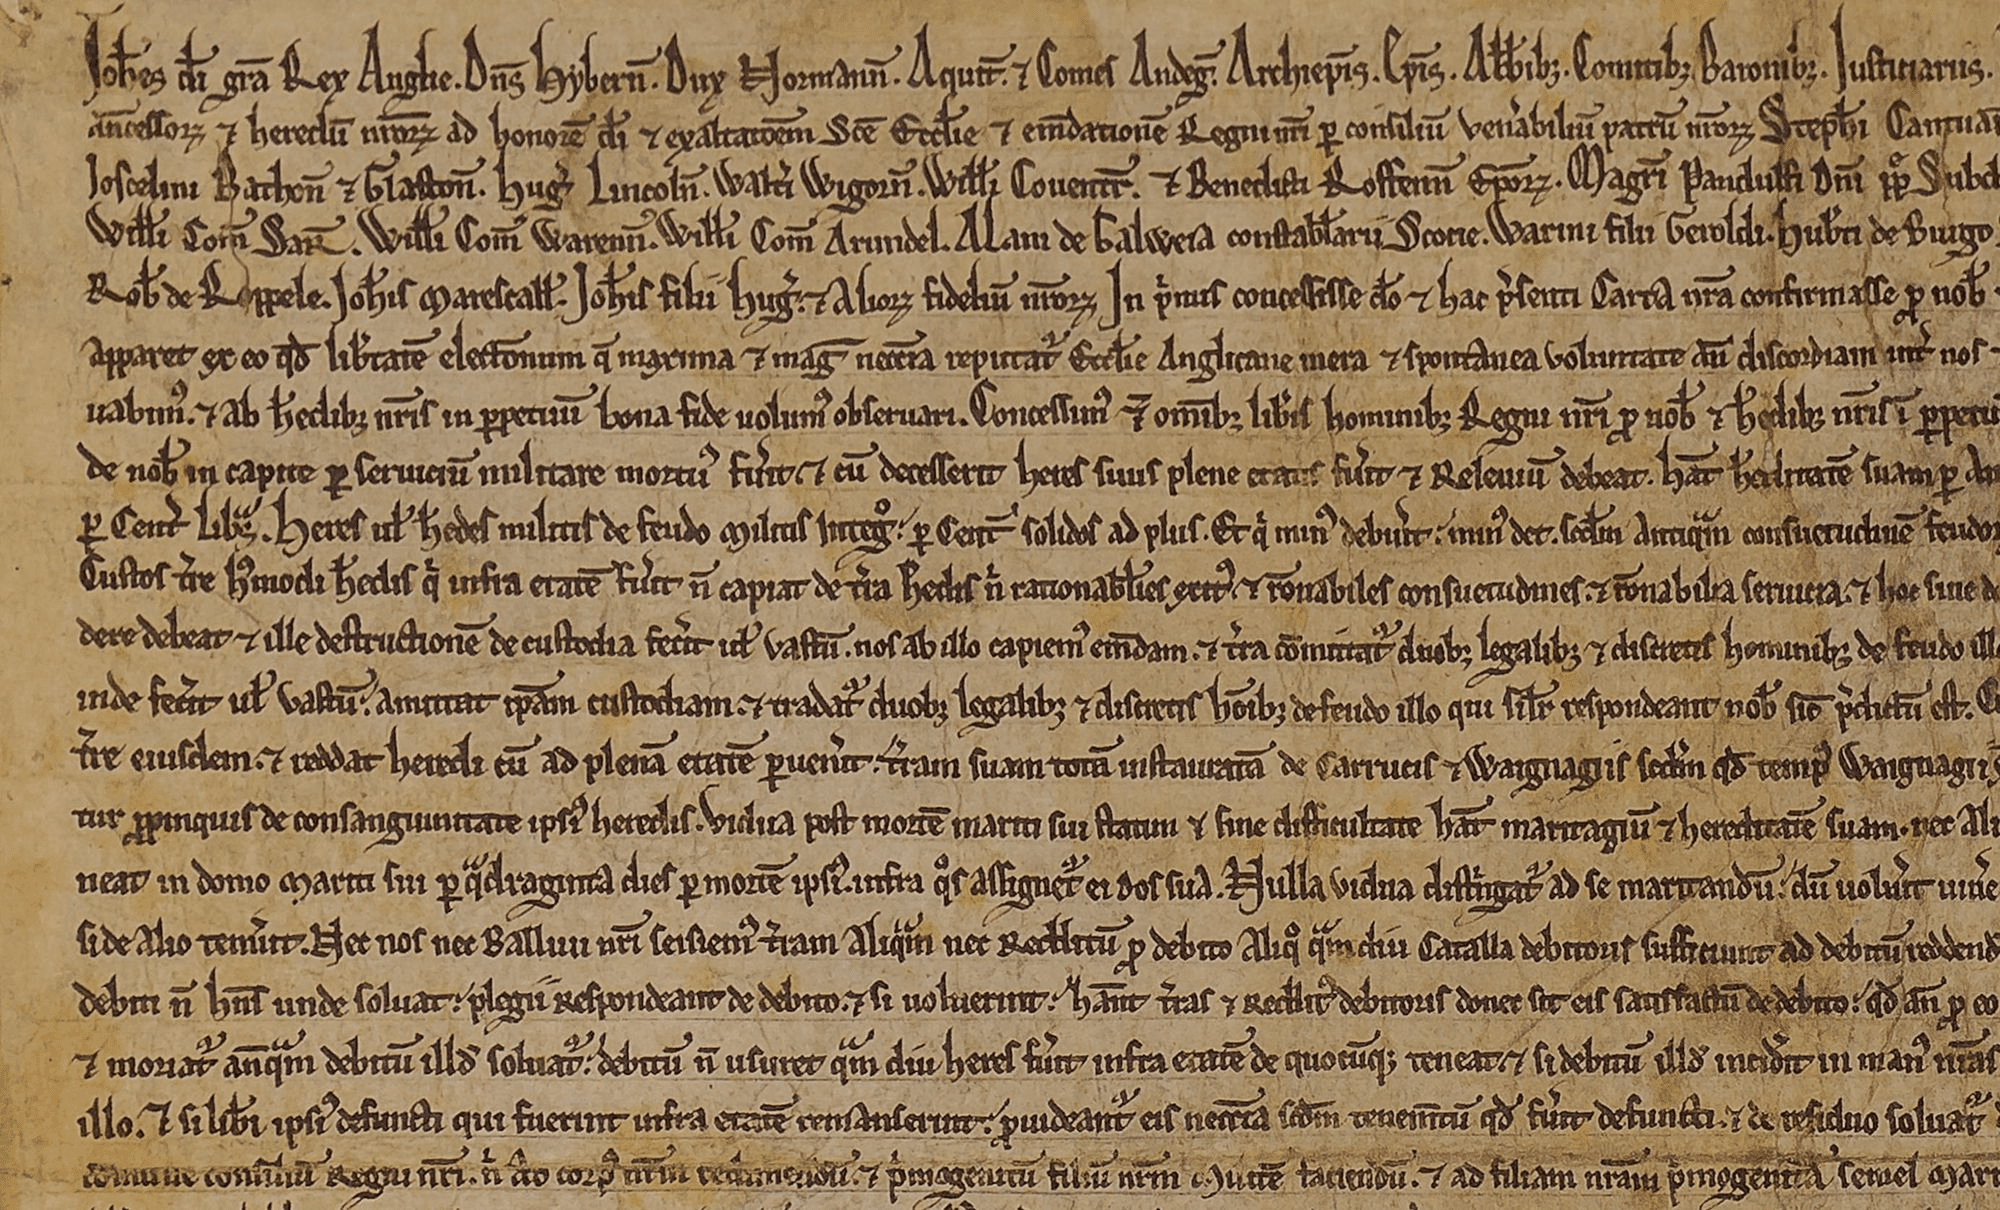 Joh̅es di̅ gr̅a Rex Anglie. Dn̅s Hybern̅. Dux Normann̅. Aquit̅. ⁊ Comes Andeg̅. Archiep̅is. Ep̅is. Abb̅ibꝫ. Comitibꝫ Baronibꝫ. Justiciariis.
an̅cessorꝝ ⁊ heredu̅ nr̅orꝝ ad honore̅ di̅ ⁊ exaltac̅oem̅ Sc̅e Eccl̅ie ⁊ em̅datione̅ Regni nr̅i ꝑ consiliu̅ ven̅abiliu̅ patru̅ nr̅orꝝ Steph̅i Cantuar̅
Joscelini Bathon̅ ⁊ Glaston̅. Hug̅ Lincoln̅. Walt̅i Wigorn̅. Will̅i Coventr̅. ⁊ Benedicti Roffenn̅ Ep̅orꝝ. Magr̅i Pandulfi Dn̅i pp̅ Subd
Will̅i Com̅ Sar̅. Will̅i Com̅ Warenn̅. Will̅i Com̅ Arundel. Alani de Galweia constabl̅arii Scocie. Warini filii Geroldi. Hub̅ti de Burgo
Rob̅ de Roppele. Joh̅is Marescall̅. Joh̅is filii Hug̅. ⁊ Aliorꝝ fideliu̅ nr̅orꝝ In p̅mis concessisse d̅o ⁊ hac p̅senti Carta nr̅a confirmasse ꝓ nob̅
apparet ex eo qd̅ lib̅tate̅ electionum q̅ maxima ⁊ mag̅ necc̅ia reputat᷑ Eccl̅ie Anglicane mera ⁊ spontanea voluntate an̅ discordiam int̅ nos
vabimꝰ. ⁊ ab h̅edibꝫ nr̅is in ꝑpetuu̅ bona fide volumꝰ observari. Concessimꝰ ⁊ om̅ibꝫ lib̅is hominibꝫ Regni nr̅i ꝓ nob̅ ⁊ h̅edibꝫ nr̅is i̅ ꝑpetuu̅
de nob̅ in capite ꝑ serviciu̅ militare mortuꝰ fu̅it. ⁊ cu̅ decesserit heres suus plene etatis fu̅it ⁊ Releviu̅ debeat. ha̅t h̅editate̅ suam ꝑ An
ꝑ Cent̅ libꝫ. Heres ul̅ h̅edes militis de feudo Militis Integ̅. ꝑ Cent̅ solidos ad plus. Et q̅ minꝰ debu̅it. minꝰ det. scd̅m Antiq̅m consuetudine̅ feudorꝝ
Custos t̅re hꝰmodi h̅edis q̅ infra etate̅ fu̅it n̅ capiat de t̅ra h̅edis n̅ rationabl̅es exitꝰ ⁊ r̅onabiles consuetudines. ⁊ r̅onabilia servicia. ⁊ hoc sine d
dere debeat ⁊ ille destructione̅ de custodia fec̅it ul̅ vastu̅. nos ab illo capiemꝰ em̅dam. ⁊ t̅ra co̅mittat᷑ duobꝫ legalibꝫ ⁊ discretis hominibꝫ de feudo illo
inde fec̅it ul̅ vastu̅. amittat ip̅am custodiam. ⁊ tradat᷑ duobꝫ legalibꝫ ⁊ discretis ho̅ibꝫ de feudo illo qui sil̅r respondeant nob̅ sic̅ p̅dictu̅ est.
t̅re eiusdem. ⁊ reddat heredi cu̅ ad plena̅ etate̅ ꝑven̅it. t̅ram suam tota̅ instaurata̅ de Carrucis ⁊ Waignagiis scd̅m qd̅ tempꝰ Waignagii
tur ꝓpinquis de consanguinitate ipsiꝰ heredis. Vidua post morte̅ mariti sui statim ⁊ sine difficultate ha̅t maritagiu̅ ⁊ hereditate̅ suam. nec Ali
neat in domo Mariti sui ꝑ q̅draginta dies p morte̅ ipsiꝰ. infra q̅s assignet᷑ ei dos sua. Nulla vidua dist̅ngat᷑ ad se maritandu̅. du̅ volu̅it vive
si de Alio tenu̅it. Nec nos nec Ballivi nr̅i seisiemꝰ t̅ram Aliq̅m nec Reddditu̅ ꝓ debito Aliq̅ q̅mdiu Catalla debitoris sufficiunt ad debitu̅ reddend
debiti n̅ hn̅s unde solvat. plegii Respondeant de debito. ⁊ si voluerint. ha̅nt t̅ras ⁊ Redditꝰ debitoris donec sit eis satisfactu̅ de debito. qd̅ an̅ ꝓ eo
⁊ moriat᷑ an̅q̅m debitu̅ illd̅ solvat᷑. debitu̅ n̅ usuret q̅mdiu heres fu̅it infra etate̅ de quocu̅qꝫ teneat. ⁊ si debitu̅ illd̅ incid̅it in manꝰ nr̅as
illo. ⁊ si lib̅i ipsiꝰ defuncti qui fuerint infra etate̅ remanserint. ꝓvideant᷑ eis necc̅ia scd̅m tenem̅tu̅ qd̅ fu̅it defuncti. ⁊ de residuo solvat᷑
co̅mune consiliu̅ Regni nr̅i. n̅ ad corpꝰ nr̅m redimendu̅. ⁊ p̅mogenitu̅ filiu̅ nr̅m Milite̅ faciendu̅. ⁊ ad filiam nr̅am p̅mogenita̅ semel Mari